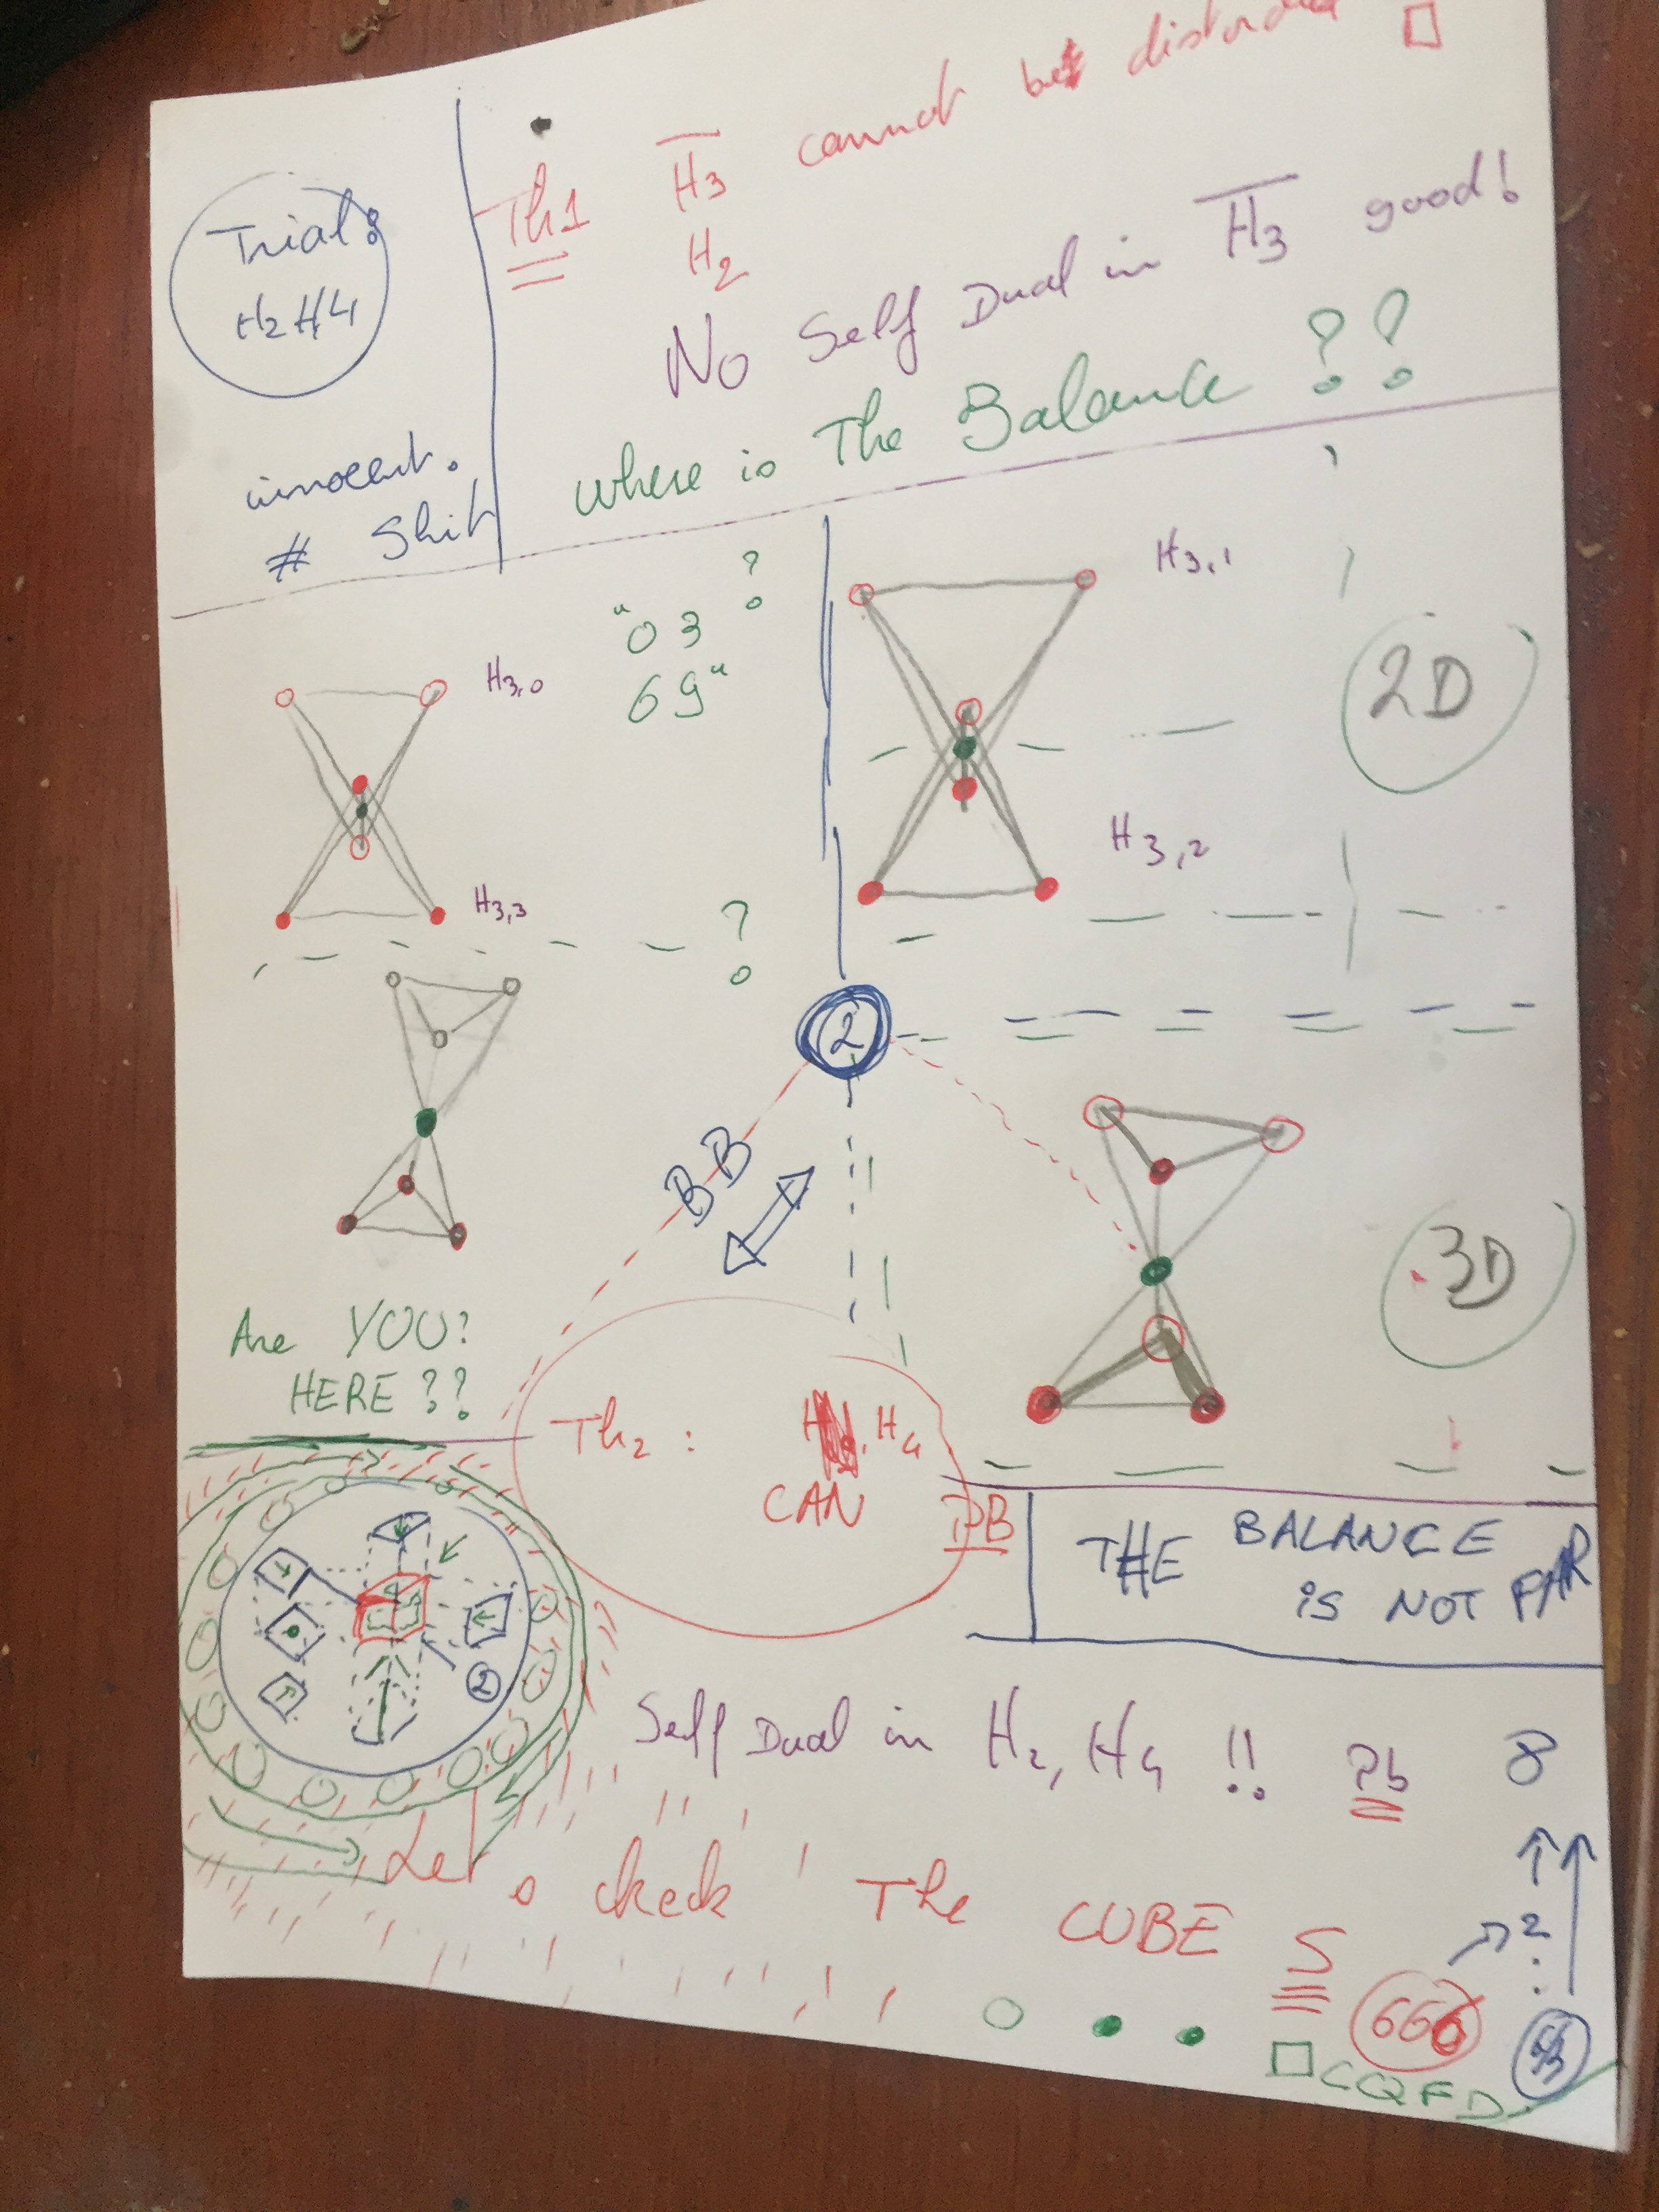 Trial:
H2 H4
innocent.
# Shit
Th1 H3 cannot be
H2
No Self Dual in H3 good!
where is The Balance ??
"03 ?
69"
H3,0
H3,3
?
H3,1
2D
H3,2
2
BB
3D
Are YOU?
HERE ??
Th2 : H4
CAN PB
THE BALANCE
IS NOT FAR
2
Self Dual in H2, H4 !! Pb 8
Let's check The CUBE S
2
666
CQFD